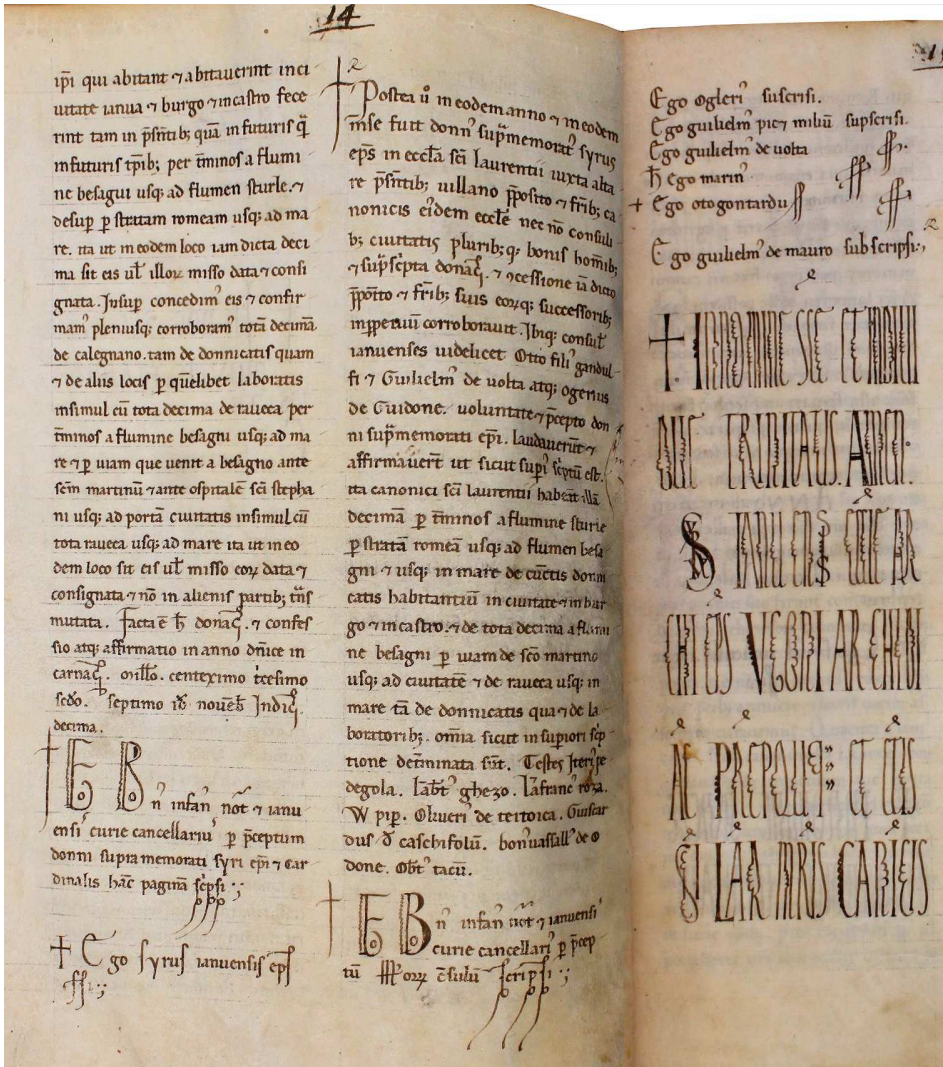 14
ip̃i qui abitant ⁊ abitaverint inci
uitate ianua ⁊ burgo ⁊ incastro fece
rint tam in p̃sñtib; quã in futuris q̃
in futuris tp̃ib; per t̃minos a flumi
ne besagni usq; ad flumen sturle. ⁊
desup̱ p̱ stratam romeam usq; ad ma
re. ita ut in eodem loco iam dicta deci
ma sit eis ul̃ illoꝝ misso data ⁊ consi
gnata. Insup̱ concedim᷒ eis ⁊ confir
mam᷒ pleniusq; corroboram᷒ totã decimã
de calegnano. tam de donnicatis quam
⁊ de aliis locis p̱ quẽlibet laboratis
insimul cũ tota decima de raueca per
t̃minos a flumine besagni usq; ad ma
re ⁊ p̱ uiam que uenit a besagno ante
sc̃m martinũ ⁊ ante ospitalẽ sc̃i stepha
ni usq; ad portã ciuitatis insimul cũ
tota raueca usq; ad mare ita ut in eo
dem loco sit eis ul̃ misso eoꝝ data ⁊
consignata ⁊ nõ in alienis partib; t̃ns
mutata. Facta ẽ h̃ donac̃. ⁊ confes
sio atq; affirmatio in anno dñice in
carnac̃. millo. centeximo t̃cesimo
sc̃do. septimo id̃ nouẽb̃ Indic̃.
decima.
E B
ñ infañ not̃ ⁊ ianu
ensi᷒ curie cancellari᷒ p̱ p̃ceptum
donni supra memorati syri ep̃i ⁊ car
dinalis hãc paginã sc̃psi
✝ Ego syrus ianuensis ep̃s
ss̃
Postea ů in eodem anno ⁊ in eodem
m̃se fuit donn᷒ sup̃memorat᷒ syrus
ep̃s in eccl̃a sc̃i laurentii iuxta alta
re p̃sñtib; uillano p̃posito ⁊ fr̃ib; ca
nonicis eĩdem eccl̃e nec nõ consuli
b; ciuitatis plurib; q; bonis hom̃ib;
⁊ sup̃sc̃pta donac̃. ⁊ ꝯcessione iã dicto
p̃posito ⁊ fr̃ib; suis eoꝝq; successorib;
inp̱petuũ corroborauit. Ibiq; consul̃
ianuenses uidelicet Otto fili᷒ gandul
fi ⁊ Guilielm᷒ de uolta atq; ogerius
de Guidone. uoluntate ⁊ p̃cepto don
ni sup̃memorati ep̃i. laudauer̃t ⁊
affirmauer̃t ut sicut sup̱i᷒ sc̃ptũ est.
ita canonici sc̃i laurentii habeãt illã
decimã p̱ t̃minos a flumine sturle
p̱ stratã romeã usq; ad flumen besa
gni ⁊ usq; in mare de cũctis donni
catis habitantiũ in ciuitate ⁊ in bur
go ⁊ in castro. ⁊ de tota decima a flumi
ne besagni p̱ uiam de sc̃o martino
usq; ad ciuitatẽ ⁊ de raueca usq; in
mare tã de donnicatis quã ⁊ de la
boratorib;. om̃ia sicut in sup̱iori sc̃p
tione det̃minata sũt. Testes
degola. lãb̃t᷒ ghezo. lãfranc᷒ roza.
W pip̱. Oliueri᷒ de teitoica. Guiscar
dus d̃ caschifolũ. bon᷒uassall᷒ de o
done. Ob̃t᷒ tacũ.
E B
ñ infañ not̃ ⁊ ianuensi᷒
curie cancellari᷒ p̱ p̃cep
tũ oꝝ c̃sulũ scripsi
Ego Ogleri᷒ suscrisi.
Ego guilielm᷒ pic᷒ miliũ supscrisi.
Ego guilielm᷒ de uolta
h̃ Ego marin᷒
✝ Ego otogontardus
Ego guilielm᷒ de mauro subscripsi
✝ IN NOMINE SCE ET INDIVI
DUE TRINITATIS. AMEN.
S IANUENSIS ECCLE AR
CHI EPS UGONI ARCHIDI
AC PREPOSI ET CETIS
SCI LAR MRIS CANICIS